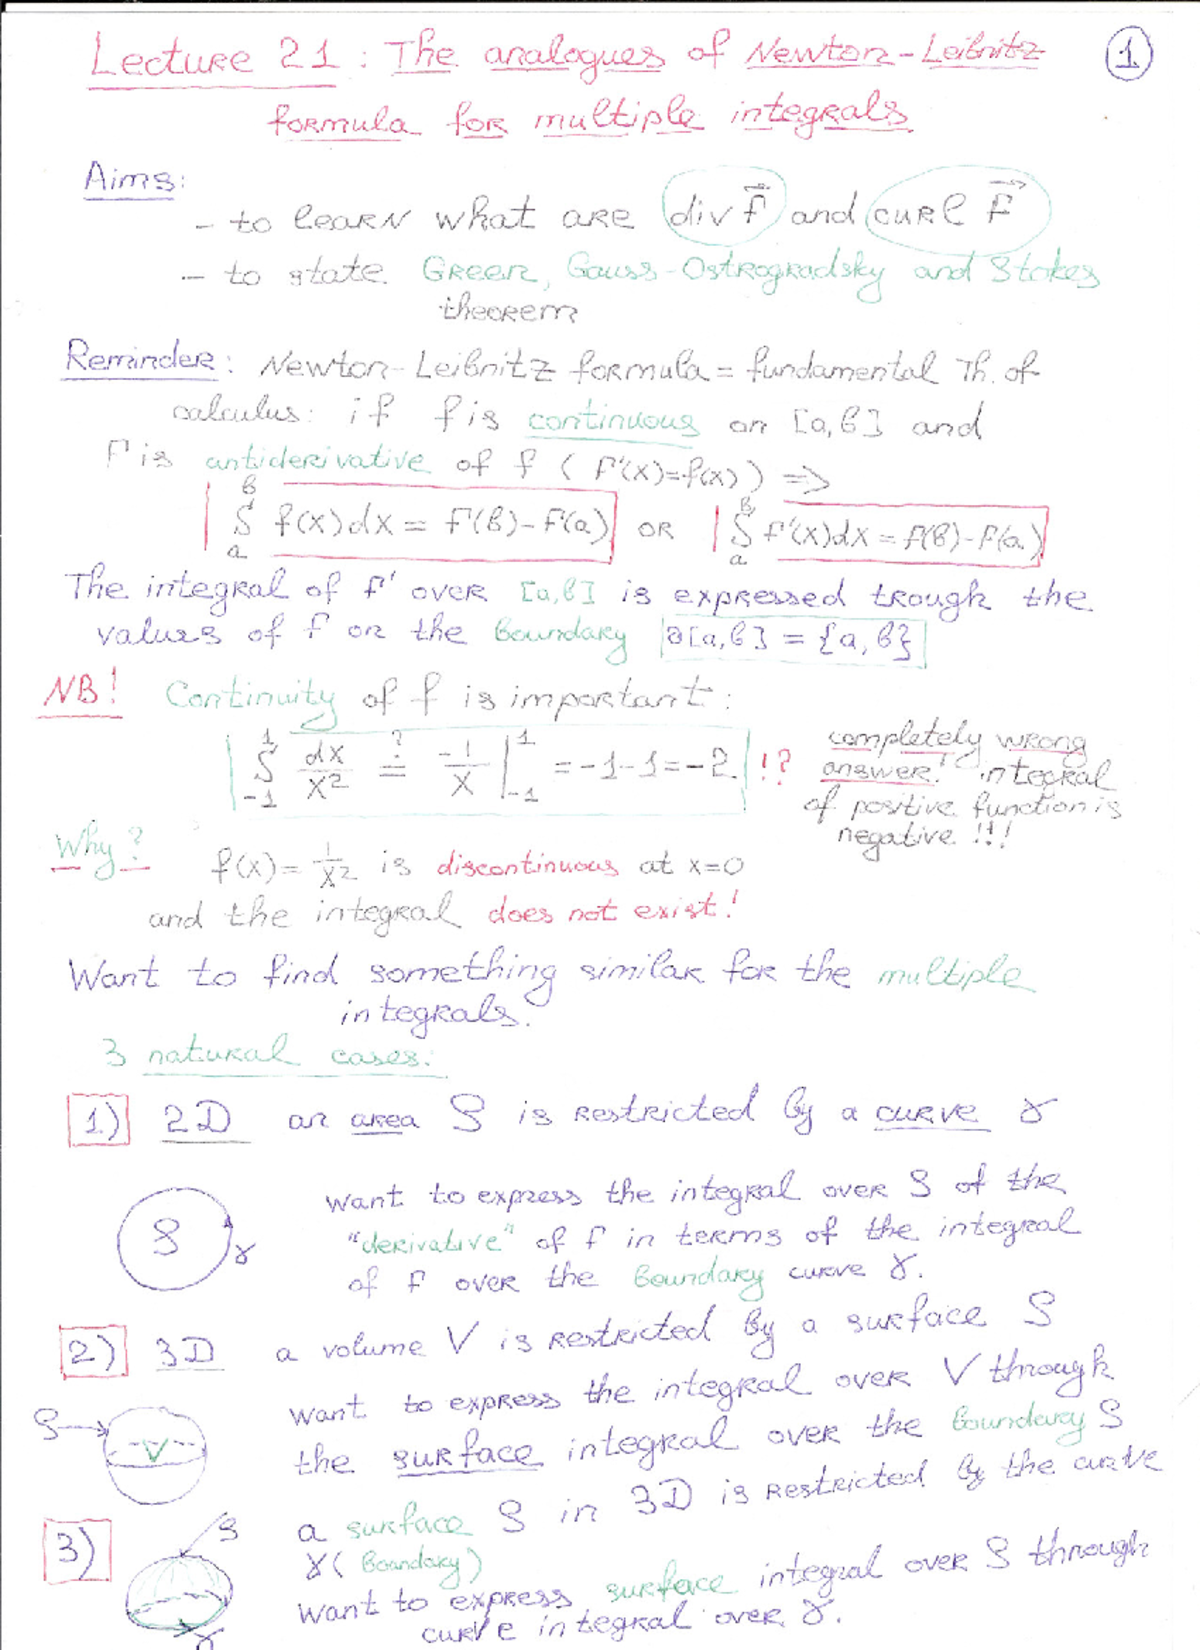 Lecture 21: The analogues of Newton-Leibnitz ①
formula for multiple integrals
Aims:
- to learn what are div F⃗ and curl F⃗
- to state Green, Gauss-Ostrogradsky and Stokes
theorem
Reminder: Newton-Leibnitz formula = fundamental Th. of
calculus: if f is continuous on [a,b] and
F is antiderivative of f (F'(x)=f(x)) =>
∫_a^b f(x)dx = F(b)-F(a) or ∫_a^b f'(x)dx = f(b)-f(a)
The integral of f' over [a,b] is expressed trough the
values of f on the boundary ∂[a,b] = {a,b}
NB! Continuity of f is important:
∫_{-1}^1 dx/x² ?= -1/x |_{-1}^1 = -1-1=-2 !? completely wrong
answer! integral
of positive function is
negative !!!
Why? f(x)= 1/x² is discontinuous at x=0
and the integral does not exist!
Want to find something similar for the multiple
integrals.
3 natural cases:
1) 2D an area S is restricted by a curve γ
want to express the integral over S of the
"derivative" of f in terms of the integral
of f over the boundary curve γ.
S γ
2) 3D a volume V is restricted by a surface S
want to express the integral over V through
the surface integral over the boundary S
S V
3) a surface S in 3D is restricted by the curve
γ (boundary)
want to express surface integral over S through
curve integral over γ.
S γ